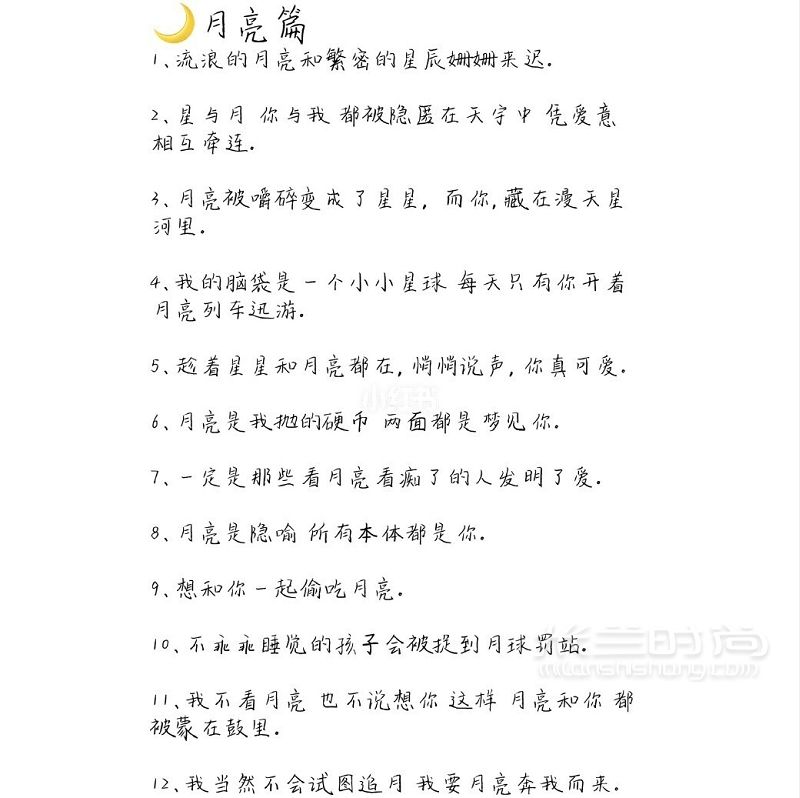 🌙月亮篇
1、流浪的月亮和繁密的星辰姗姗来迟.
2、星与月 你与我 都被隐匿在天宇中 凭爱意
相互牵连.
3、月亮被嚼碎变成了星星, 而你,藏在漫天星
河里.
4、我的脑袋是一个小小星球 每天只有你开着
月亮列车迅游.
5、趁着星星和月亮都在,悄悄说声,你真可爱.
小红书
6、月亮是我抛的硬币 两面都是梦见你.
7、一定是那些看月亮看痴了的人发明了爱.
8、月亮是隐喻 所有本体都是你.
9、想和你一起偷吃月亮.
10、不乖乖睡觉的孩子会被捉到月球罚站.
米兰时尚
milanshishang.com
11、我不看月亮 也不说想你 这样 月亮和你 都
被蒙在鼓里.
12、我当然不会试图追月 我要月亮奔我而来.